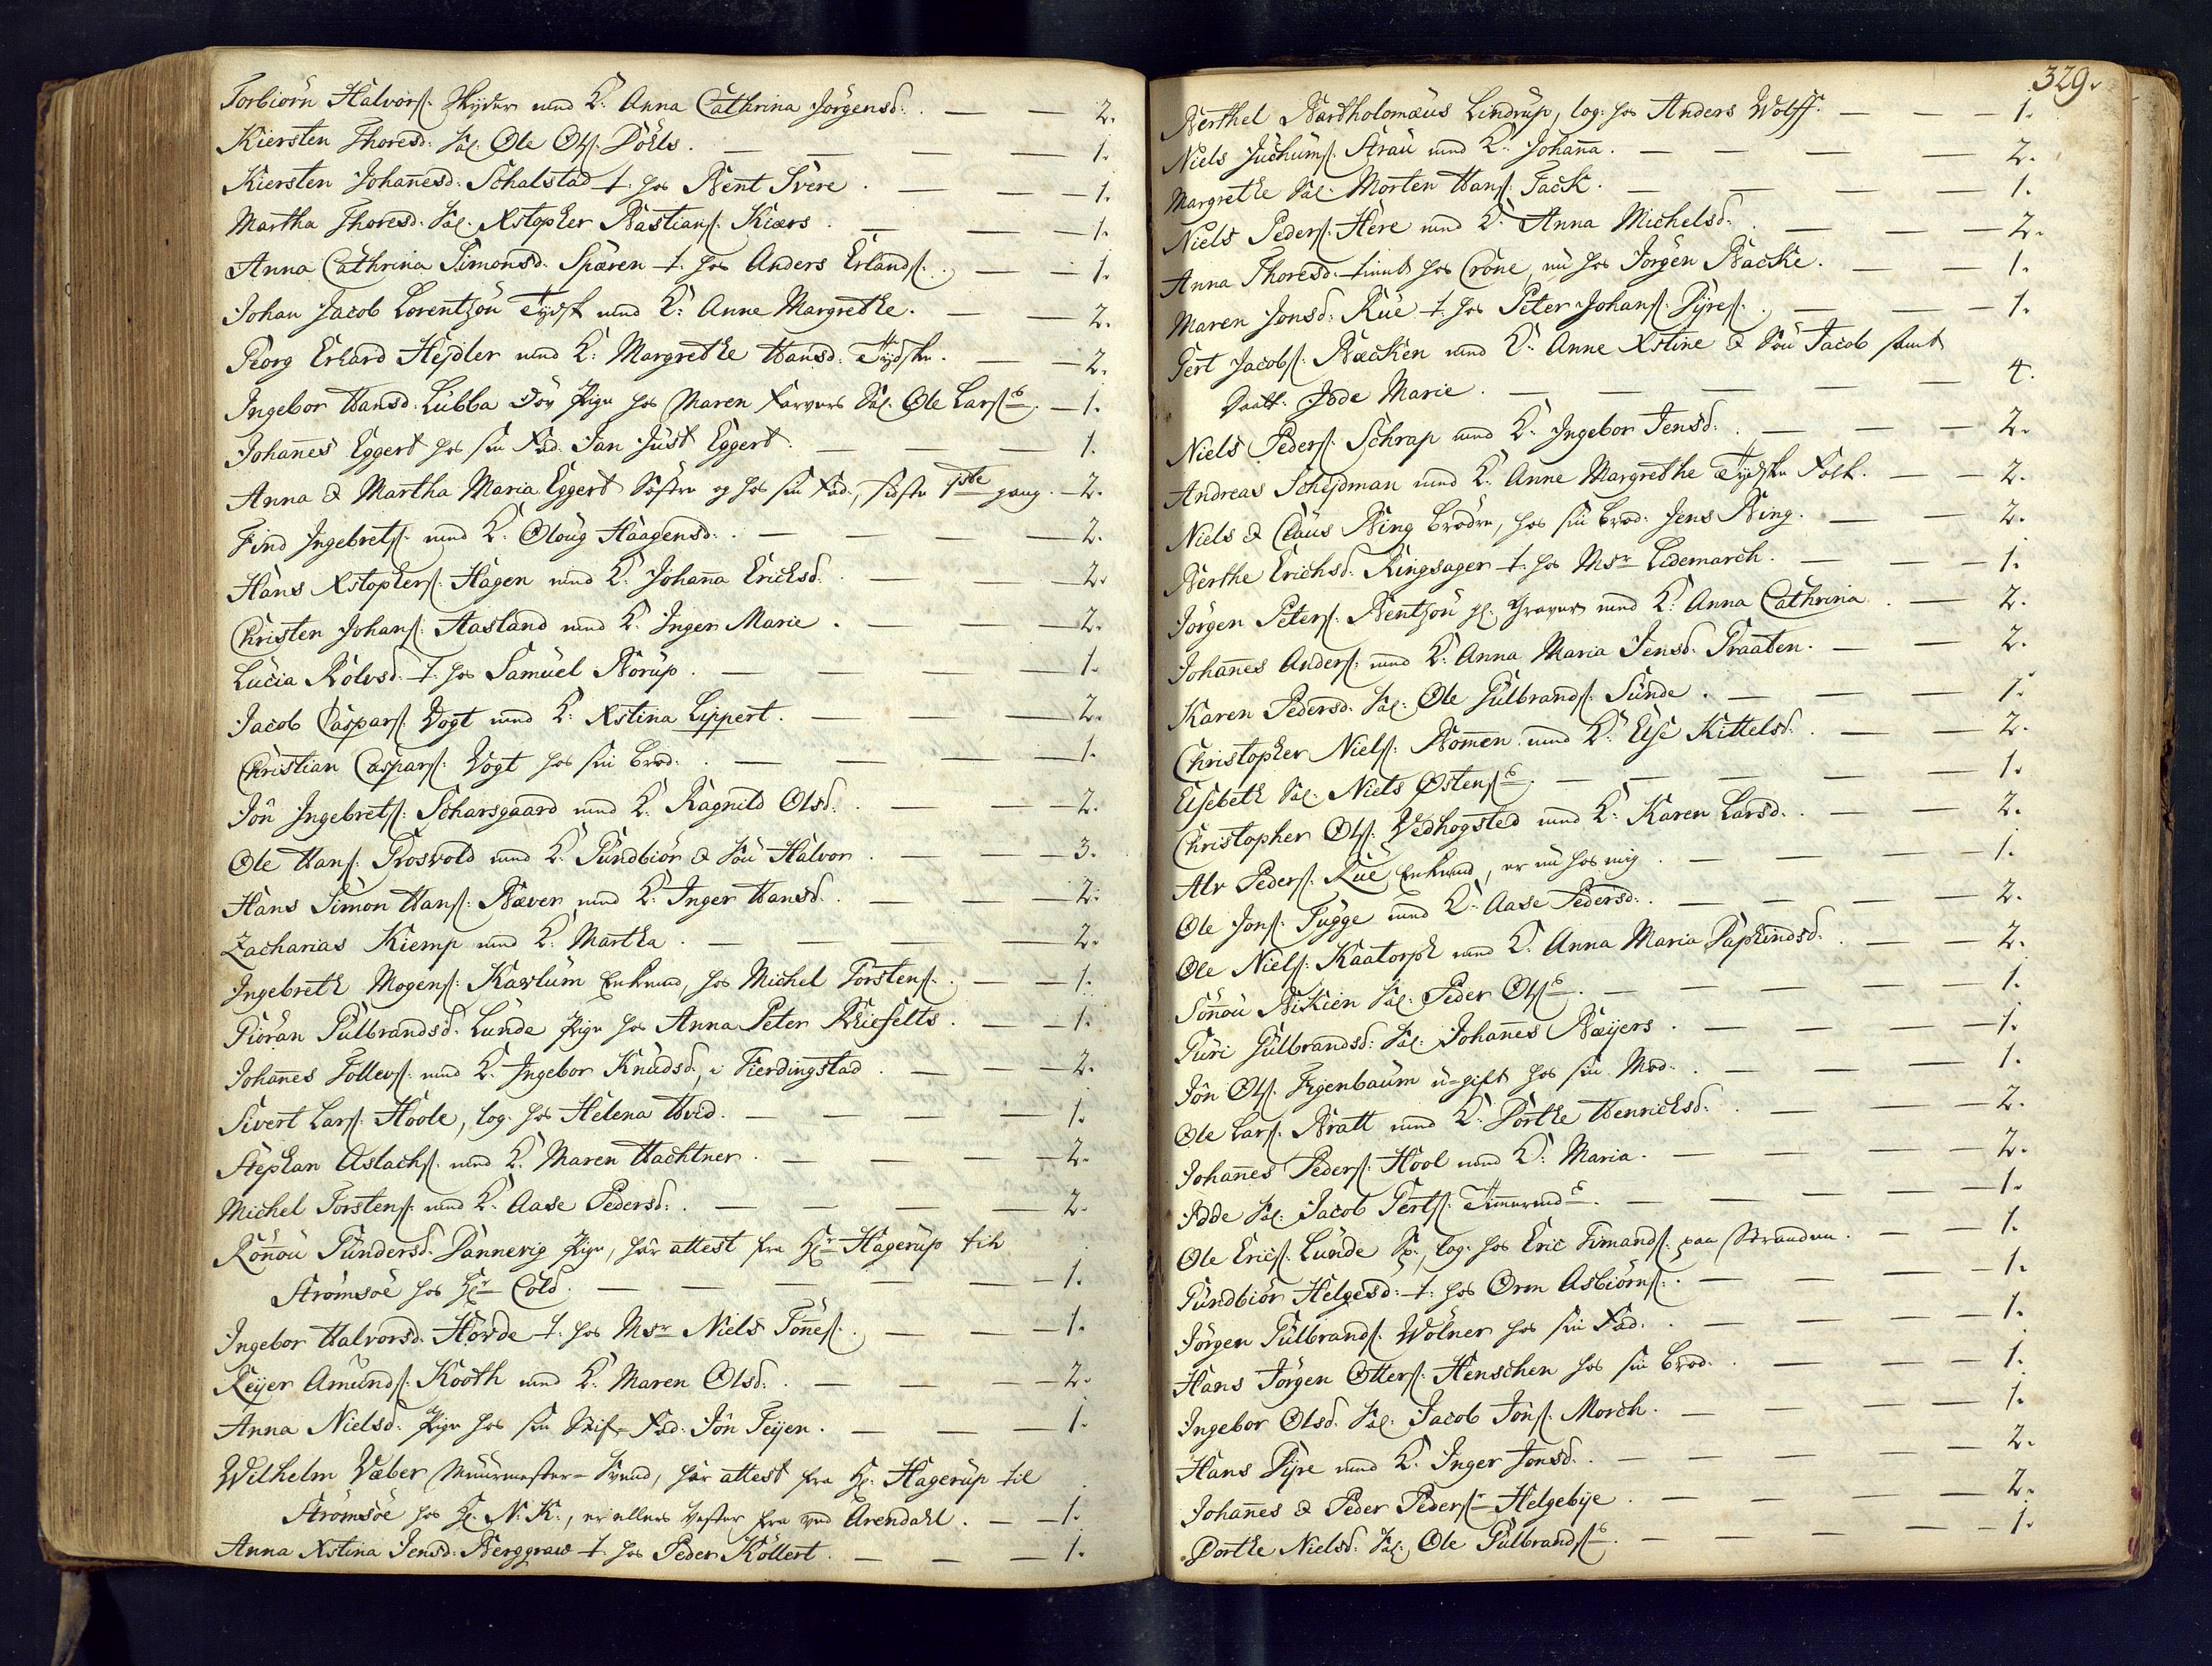 Torbiörn Halvorſ: Skyder med K: Anna Cathrina Jörgensd: . — — 2.
Kiersten Thoresd: Sal. Ole Olſ: Döels. — — — — 1.
Kiersten Johañesd: Schalstad t. hos Bent Svere . — — — 1.
Martha Thoresd: Sal. Xstopher Bastianſ: Kiærs . — — — 1.
Anna Cathrina Simonsd. Spæren t. hos Anders Erlandſ: . — — 1.
Johan Jacob Lorentzön Tydsk med K: Anne Margrethe. — — 2.
Georg Erhard Hejdler med K: Margrethe Hansd: Tydske. — — 2.
Ingebor Hansd. Lübba Döv Pige hos Maren Farvers Sal. Ole Larſs. — 1.
Johañes Eggert hos sin Fad. Jan Just Eggert. — — — 1.
Anna & Martha Maria Eggert Söstre og hos sin Fad., sidste 1ste gang. — 2.
Find Ingebretſ: med K: Oloug Haagensd: . — — — — 2.
Hans Xstopherſ: Hagen med K: Johaña Ericksd. . — — — 2.
Christen Johanſ: Aasland med K: Inger Marie . — — — 2.
Lucia Rolvsd: t. hos Samüel Borüp. — — — — 1.
Jacob Casparſ: Vogt med K: Xstina Lippert. — — — 2.
Christian Casparſ: Vogt hos sin Brod: . — — — — 1.
Jön Ingebretſ: Scharsgaard med K: Ragnild Olsd: . — — — 2.
Ole Hanſ: Grosvold med K: Gundbiör & Sön Halvor . — — — 3.
Hans Simon Hanſ: Bæver med K: Inger Hansd. . — — — 2.
Zacharias Kiemp med K: Martha . — — — — 2.
Ingebreth Mogenſ: Kaxlüm Enkemd, hos Michel Torstenſ: . — — 1.
Giöran Gulbrandsd. Lunde Pige hos Anna Peter Rhiefelts . — — 1.
Johañes Tollevſ: med K: Ingebor Knudsd., i Fierdingstad . — — — 2.
Sivert Larſ: Hoole, log. hos Helena Hvid. — — — — 1.
Stephan Aslachſ: med K: Maren Wachtner. — — — — 2.
Michel Torstenſ: med K: Aase Pedersd: . — — — — 2.
Rönöu Gundersd: Dannevig Pige, har attest fra Hr Hagerüp til
Strömsöe hos Hr Cold. — — — — — 1.
Ingebor Halvorsd. Hovde t. hos Msr Niels Töñeſ: . — — — 1.
Reyer Amündſ: Kooth med K: Maren Olsd: . — — — — 2.
Anna Nielsd: Pige hos sin Stif-Fad. Jön Feyen. — — — 1.
Wilhelm Wæber Müürmester-Svend, har attest fra Hr. Hagerüp til
Strömsöe hos Hr. N: N:, er ellers Vester fra ved Arendahl . — — 1.
Anna Xstina Jensd: Berggraw t. hos Peder Köllert. — — — 1.
329.
Berthel Bartholomæus Lindrup, log: hos Anders Wolff. — — — 1.
Niels Jüchümſ: Strau med K: Johaña. — — — — 2.
Margrethe Sal: Morten Hanſ: Fack. — — — — 1.
Niels Pederſ: Here med K: Anna Michelsd: . — — — 2.
Anna Thoresd: tient hos Cröne, nu hos Jörgen Backe. — — 1.
Maren Jonsd: Rüe t. hos Peter Johanſ: Dyreſ: . — — — 1.
Gert Jacobſ: Bæcken med K: Anne Xstine & Sön Jacob samt
Daatt: Jode Marie. — — — — — 4.
Niels Pederſ: Schrap med K: Ingebor Jensd: . — — — 2.
Andreas Schejdman med K: Anne Margrethe Tydske Folk. — — 2.
Niels & Claüs Bing Brödre, hos sin Brod: Jens Bing. — — 2.
Berthe Erichsd: Ringsager t. hos Msr Lidemarch. — — — 1.
Jörgen Peterſ: Bentzön gl. Graver med K: Anna Cathrina . — 2.
Johañes Anderſ: med K: Anna Maria Jensd: Graaten. — — 2.
Karen Pedersd. Sal: Ole Gülbrandſ: Sünde . — — — 1.
Christopher Nielſ: Bomen med K: Else Kittelsd: . — — 2.
Elsebeth Sal. Niels Østenſs. — — — — 1.
Christopher Olſ: Vedhogsted med K: Karen Larsd: . — 2.
Alv Pederſ: Rüe Enkemd, er nu hos mig . — — — 1.
Ole Jonſ: Tügge med K: Aase Pedersd: . — — — 2.
Ole Nielſ: Kaatorph med K: Anna Maria Daphindsd: . — — 2.
Söñöu Bikien Sal: Peder Olſs. — — — — 1.
Guri Gülbrandsd: Sal: Johañes Bæyers . — — — 1.
Jön Olſ: Egenbaüm u-gift hos sin Mod: . — — — 1.
Ole Larſ: Bratt med K: Dorthe Henrichsd: . — — — 2.
Johañes Pederſ: Hool med K: Maria. — — — — 2.
Jdde Sal: Jacob Gertſ: Timermds. — — — — 1.
Ole Ericſ: Lünde Sp:, log. hos Eric Simandſ: paa Stranden. — 1.
Gundbiör Helgesd: t. hos Orm Asbiörnſ: . — — — 1.
Jörgen Gülbrandſ: Wölner hos sin Fad: . — — — 1.
Hans Jörgen Otterſ: Henschen hos sin Brod: . — — — 1.
Ingebor Olsd. Sal: Jacob Jönſ: Morch. — — — — 1.
Hans Dyre med K: Inger Jonsd: . — — — — 2.
Johañes & Peder Pederſr Helgebye . — — — — 2.
Dorthe Nielsd: Sal. Ole Gülbrandſs. — — — — 1.